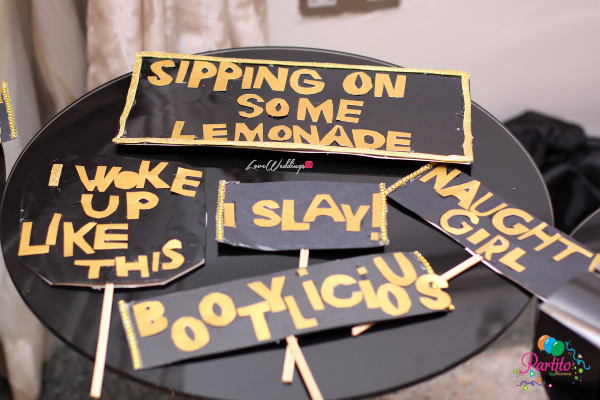 SIPPING ON
SOME
LEMONADE
LoveWeddings
I WOKE
UP
LIKE
THIS
I SLAY!
NAUGHTY
GIRL
BOOTYLICIOUS
Partito